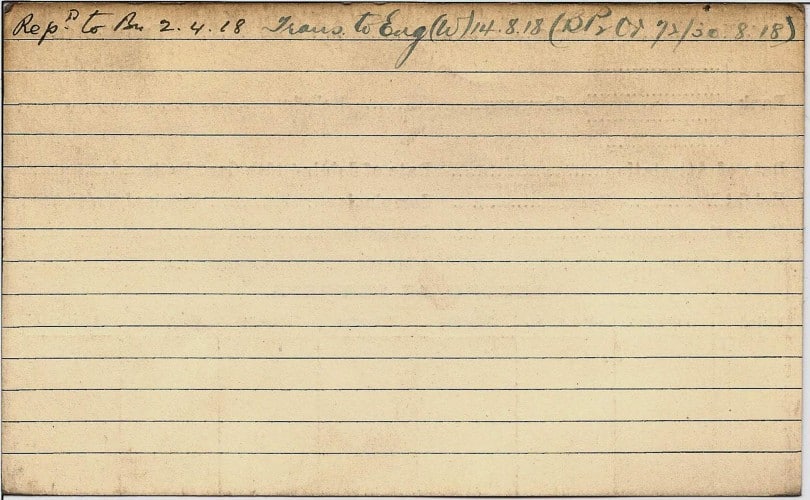 Repd to Bn 2.4.18 Trans. to Eng (W) 14.8.18 (DPr Or 72/30.8.18)